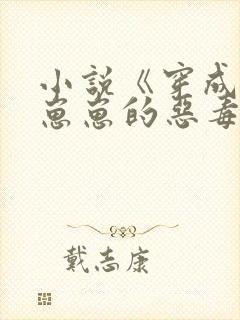 小说《穿成
崽崽的恶毒
戴志康